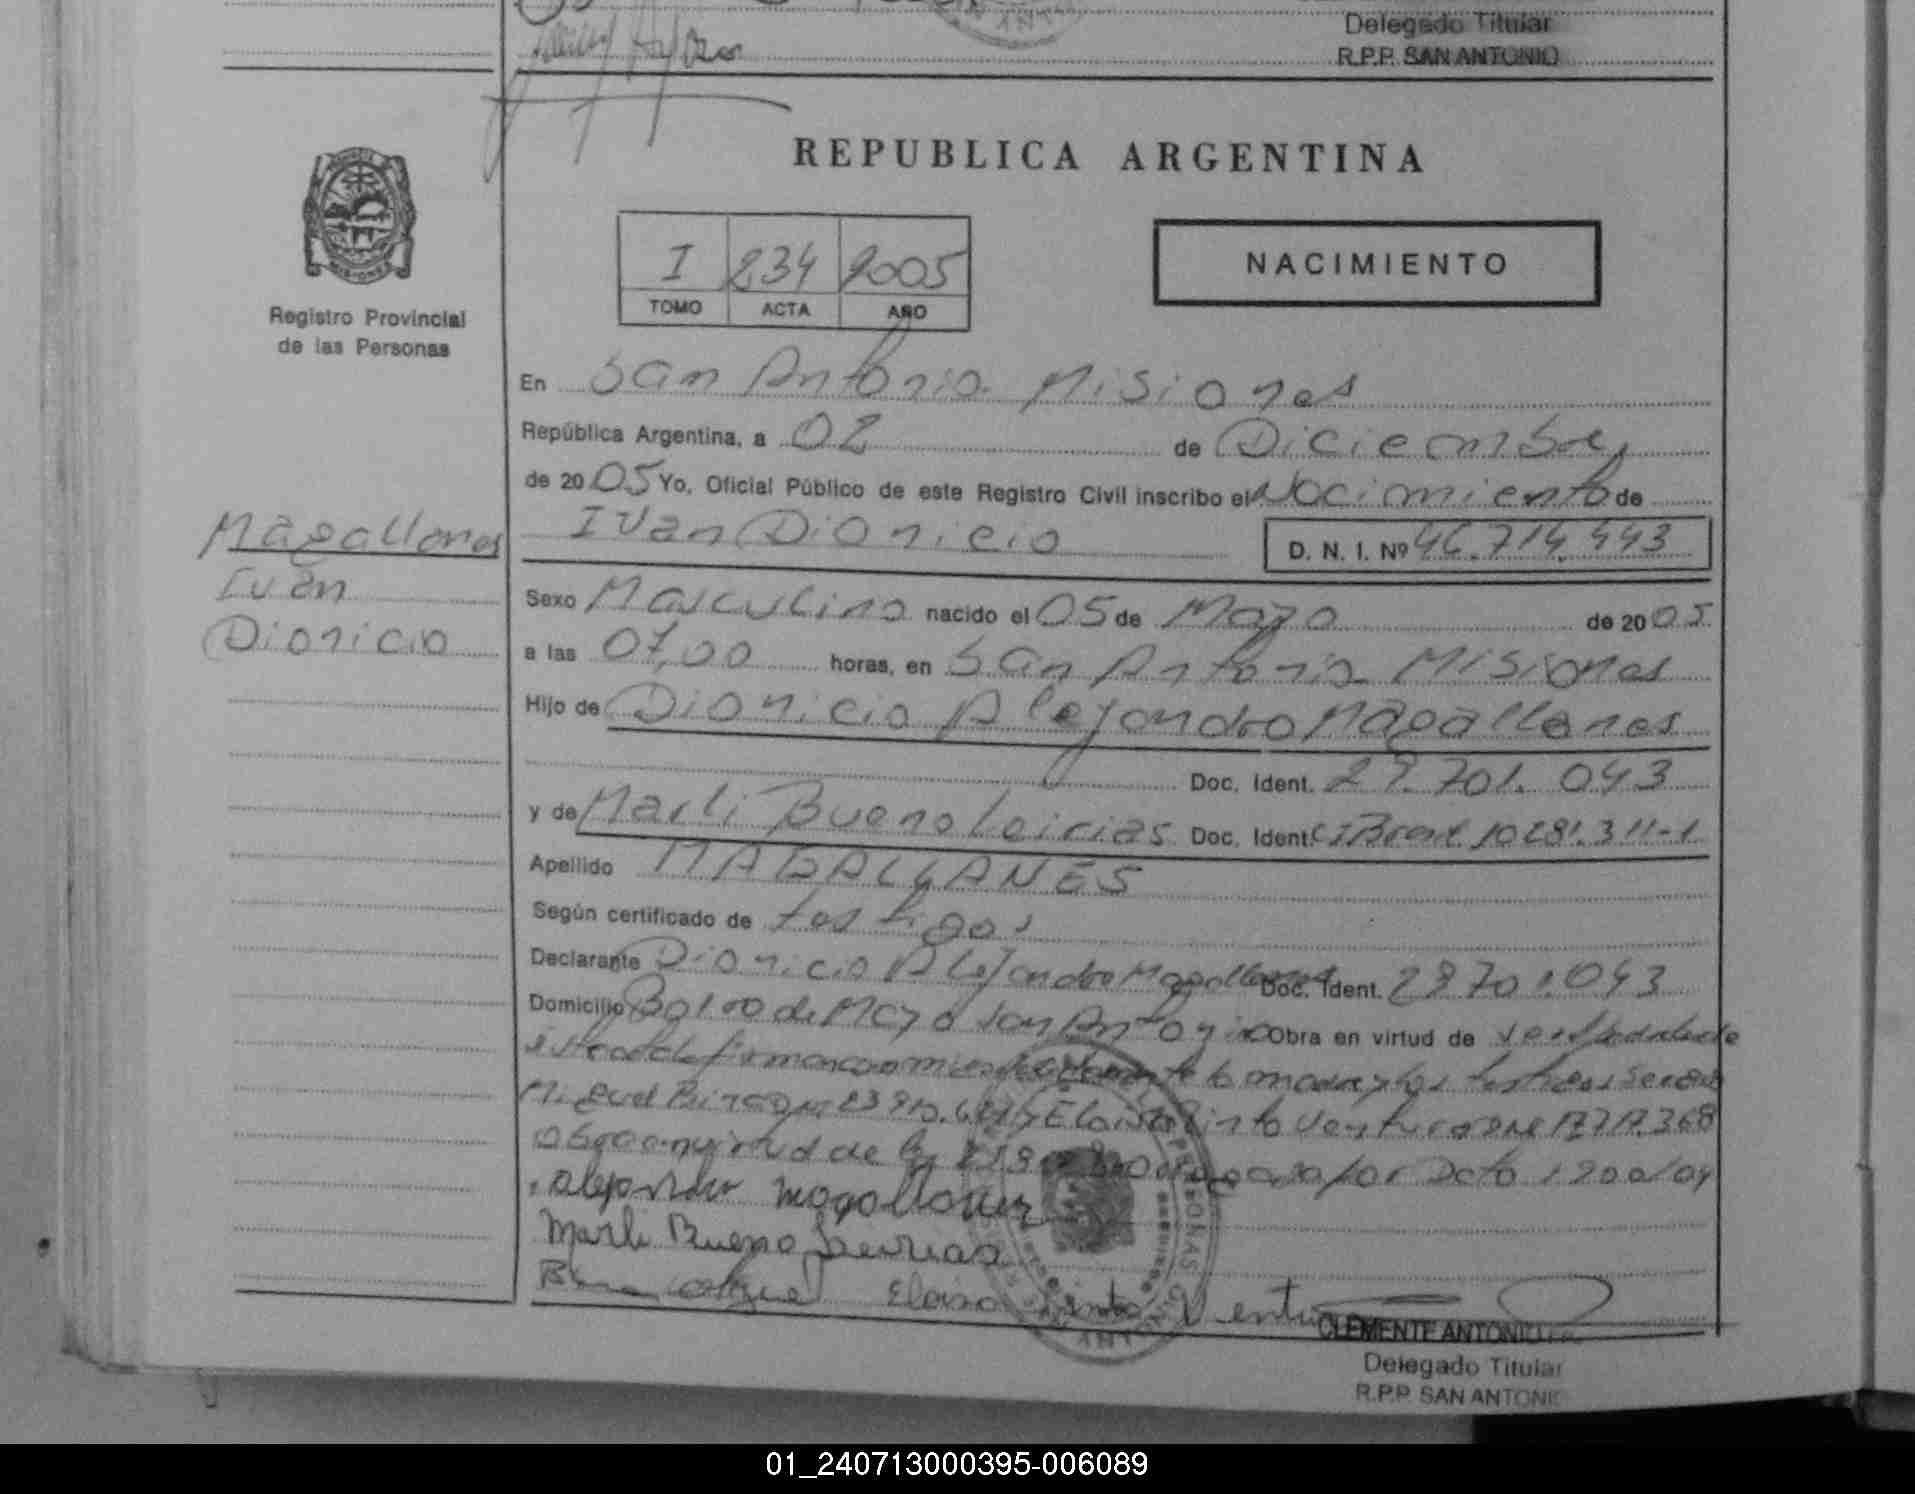 Delegado Titular
R.P.P. SAN ANTONIO
REPUBLICA ARGENTINA
MISIONES
Registro Provincial
de las Personas
I 234 2005
TOMO ACTA AÑO
NACIMIENTO
En San Antonio Misiones
República Argentina, a 02 de Diciembre
de 2005 Yo, Oficial Público de este Registro Civil inscribo el Nacimiento de
Ivan Dionicio D. N. I. Nº 46.714.443
Magallanes
Ivan
Dionicio
Sexo Masculino nacido el 05 de Mayo de 2005
a las 07,00 horas, en San Antonio Misiones
Hijo de Dionicio Alejandro Magallanes
Doc. Ident. 29.701.043
y de Marli Bueno Leirias Doc. Ident. CI Brasil 10281.311-1
Apellido MAGALLANES
Según certificado de testigos
Declarante Dionicio Alejandro Magallanes Doc. Ident. 29701.043
Domicilio Barrio de Mayo San Antonio Obra en virtud de
la madre y los testigos
Miguel Eloisa Pinto Ventura DNI
Obra en virtud de la por Dcto 1200/04
Alejandro Magallanes
Marli Bueno Leirias
Eloisa Pinto Ventura
CLEMENTE ANTONIO
Delegado Titular
R.P.P. SAN ANTONIO
01_240713000395-006089